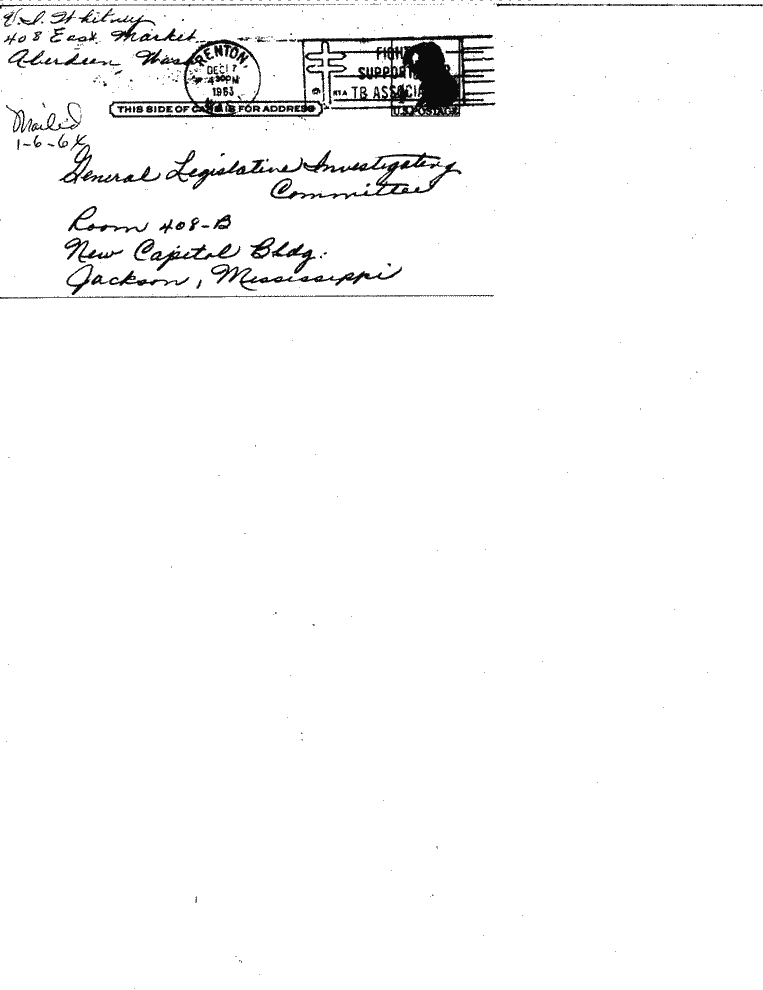 V.I. Whitney
408 East Market
Aberdeen, Wash
RENTON,
DEC 17
4 30 PM
1963
WASH.
FIGHT
SUPPORT
TB ASSOCIA
THIS SIDE OF CARD IS FOR ADDRESS
U.S. POSTAGE
Mailed
1-6-64
General Legislative Investigating
Committee
Room 408-B
New Capitol Bldg.
Jackson, Mississippi